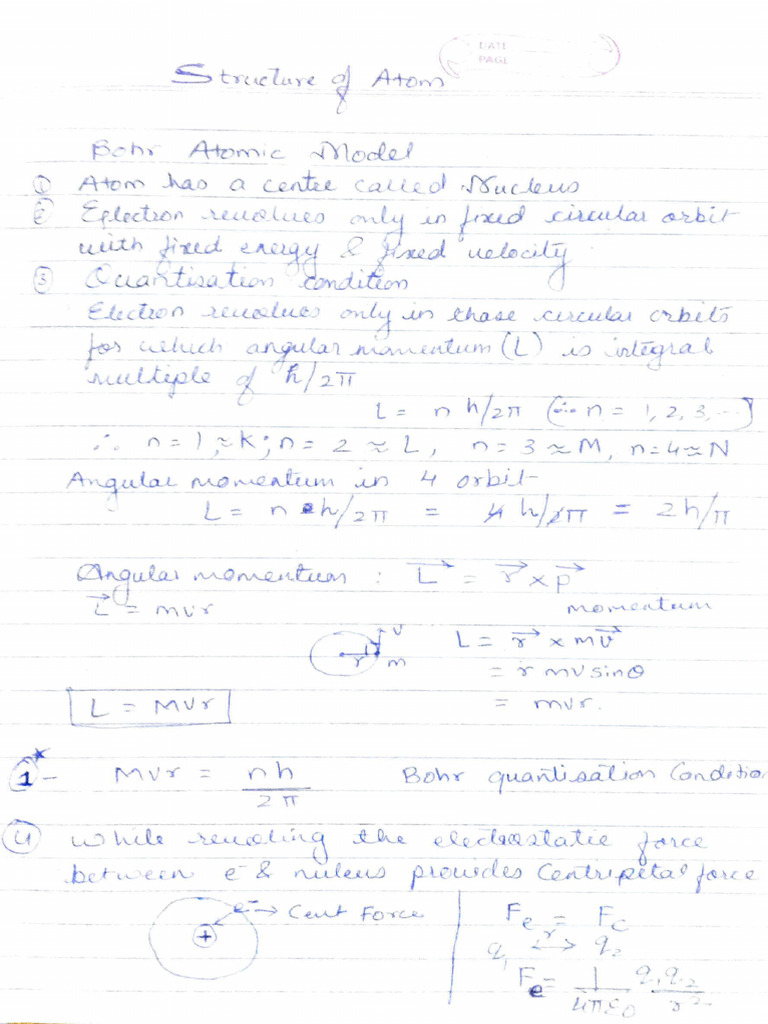 DATE
PAGE
Structure of Atom
Bohr Atomic Model
① Atom has a centre called Nucleus
② Eglectron revolves only in fixed circular orbit
with fixed energy & fixed velocity.
③ Quantisation condition
Electron revolves only in those circular orbits
for which angular momentum (L) is integral
multiple of h/2π
L = n h/2π (∴ n = 1, 2, 3, ...)
∴ n = 1, ≈ K; n = 2 ≈ L, n = 3 ≈ M, n = 4 ≈ N
Angular momentum in 4 orbit
L = n h/2π = 4 h/2π = 2h/π
Angular momentum : L⃗ = r⃗ × p⃗
L⃗ = mvr momentum
v r m L = r⃗ × mv⃗
= r mv sinθ
L = mvr = mvr.
①* - mvr = nh/2π Bohr quantisation Condition
④ While revolving the electrostatic force
between e⁻ & nuleus provides Centripetal force
e⁻ → Cent Force + Fe = Fc
q₁ ←r→ q₂
Fe = 1/4πε0 q₁q₂/r²